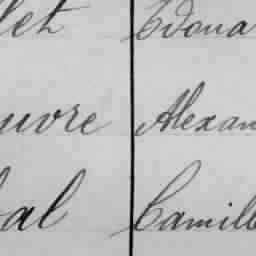 let Edoua
uvre Alexan
al Camille